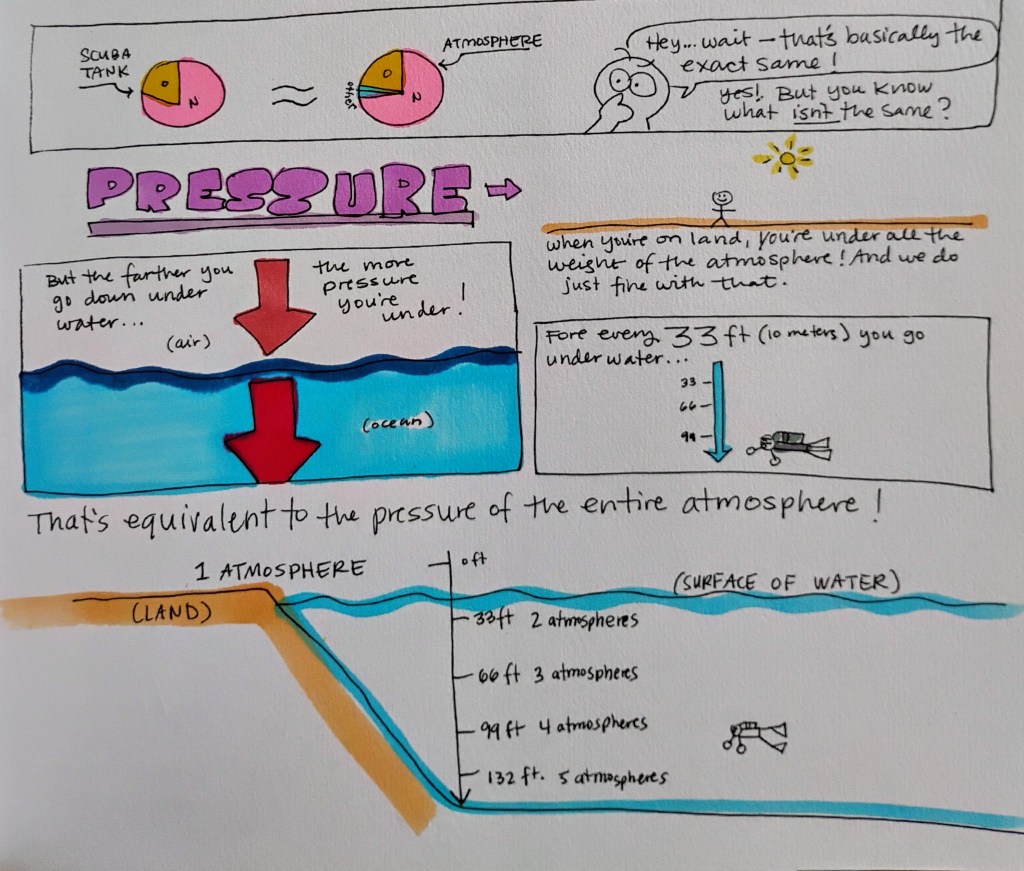 SCUBA
TANK
O
N
≈
ATMOSPHERE
O
N
other
Hey... wait — that's basically the
exact same!
yes! But you know
what isn't the same?
PRESSURE →
when you're on land, you're under all the
weight of the atmosphere! And we do
just fine with that.
But the farther you
go down under
water...
the more
pressure
you're
under!
(air)
(ocean)
Fore every 33 ft (10 meters) you go
under water...
33
66
99
That's equivalent to the pressure of the entire atmosphere!
1 ATMOSPHERE
0 ft
(SURFACE OF WATER)
(LAND)
33 ft 2 atmospheres
66 ft 3 atmospheres
99 ft 4 atmospheres
132 ft. 5 atmospheres